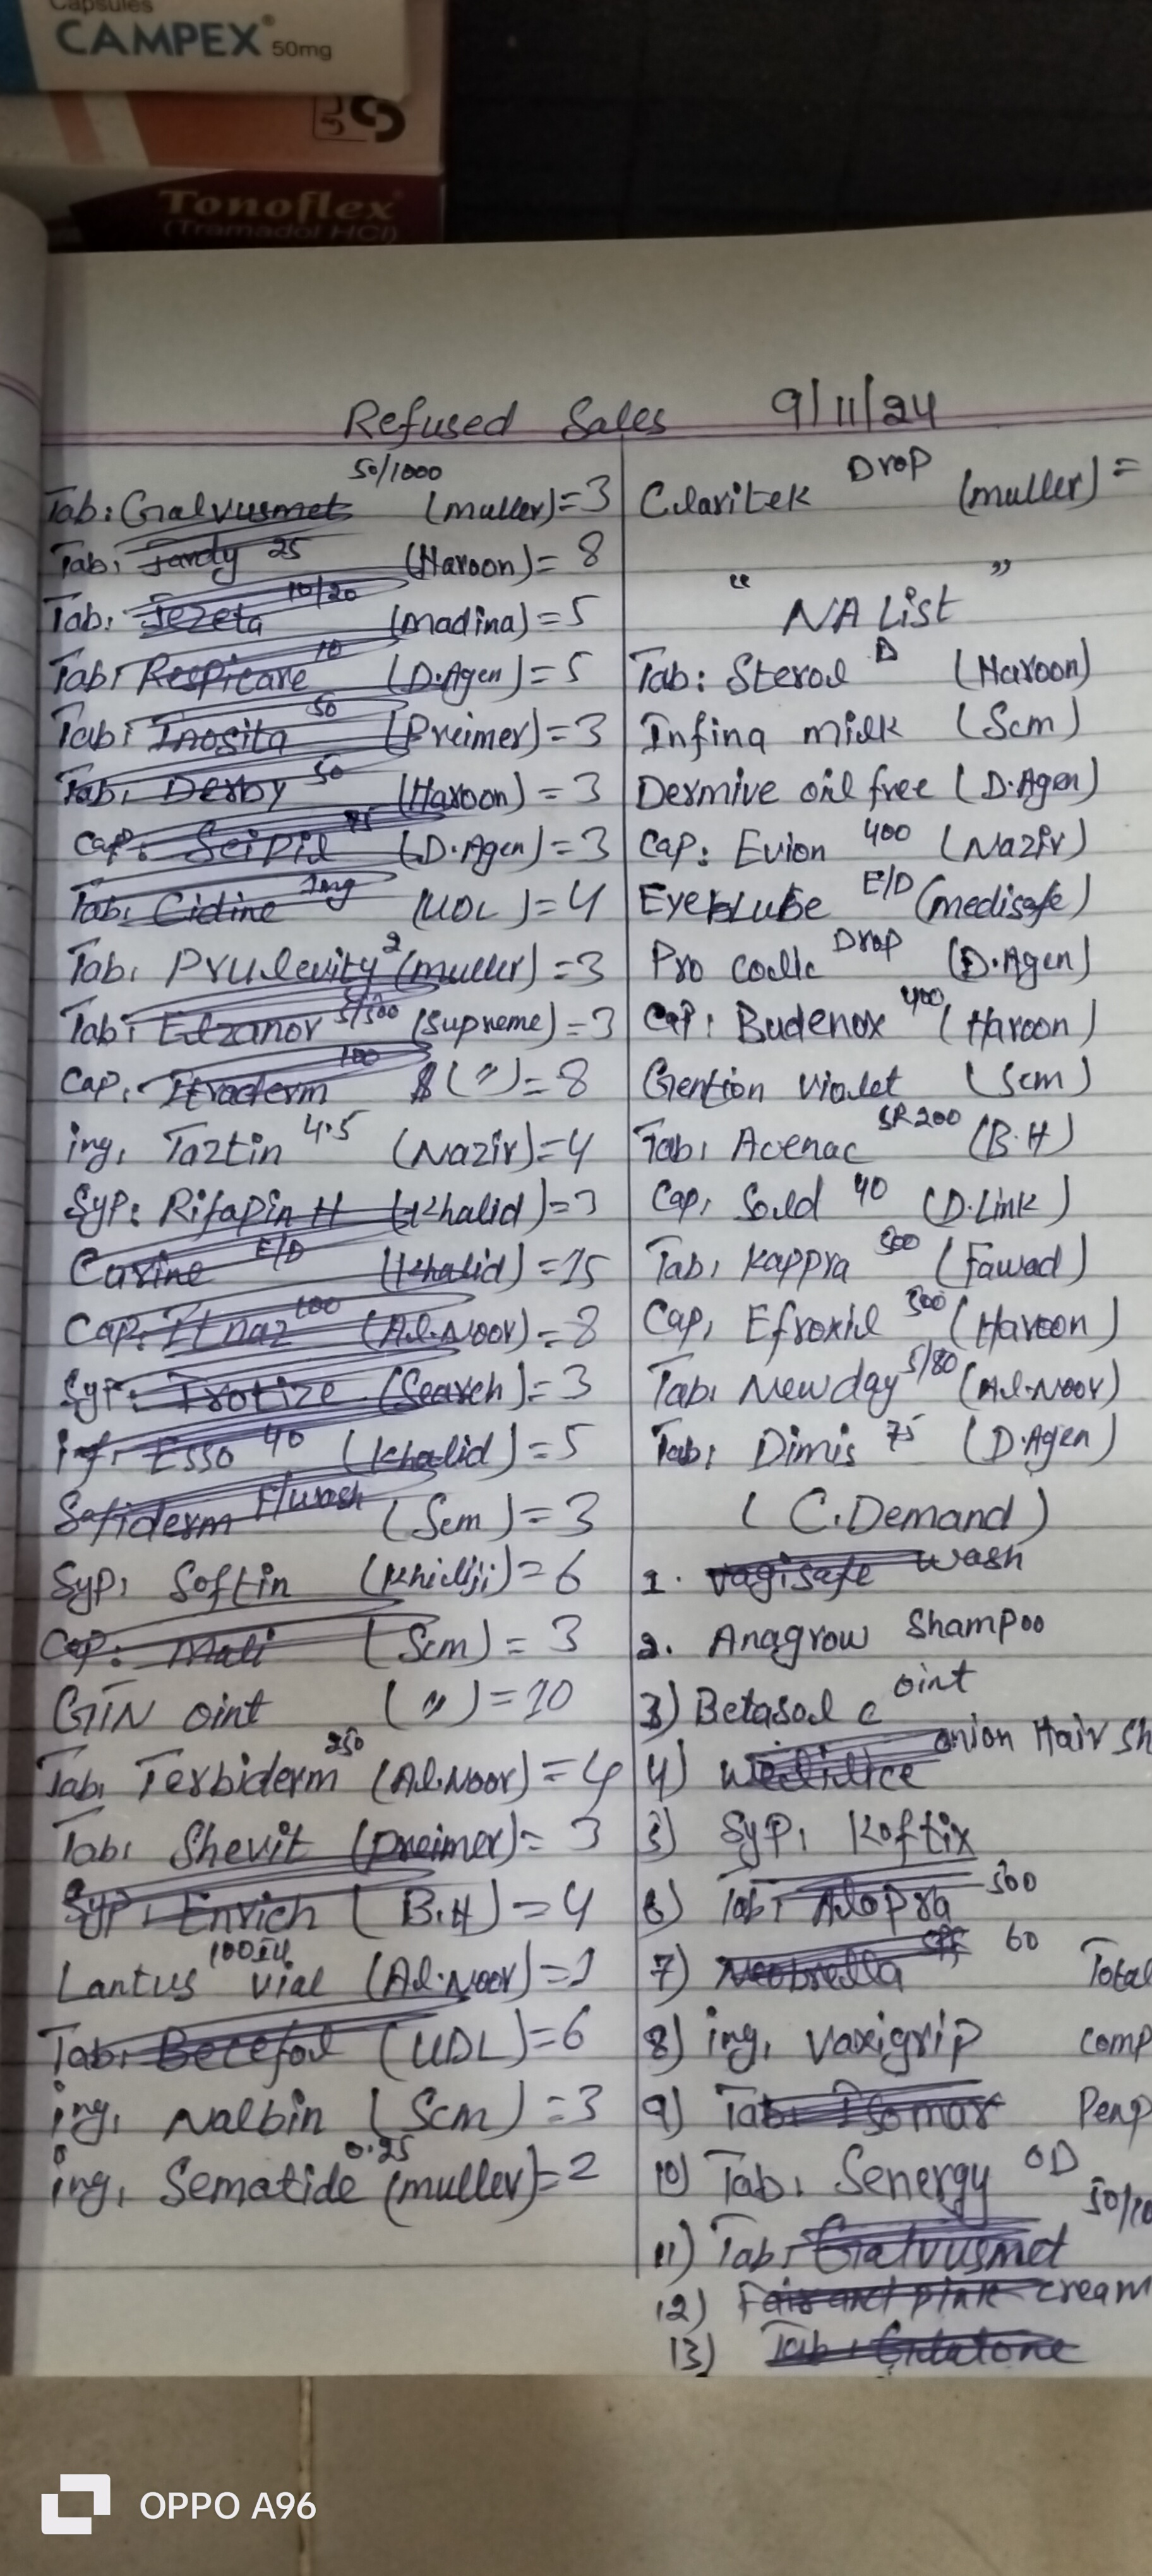 Capsules
CAMPEX® 50mg
Tonoflex®
(Tramadol HCl)
Refused Sales 9/11/24
Tab: Galvusmet 50/1000 (muller)=3
Tab, Jardy 25 (Haroon)= 8
Tab: Jezeta 10/20 (madina)=5
Tab: Respicare 10 (D.Agen)=5
Tab: Inosita 50 (Preimer)=3
Tab, Derby 50 (Haroon)=3
Cap: Scipil 75 (D.Agen)=3
Tab: Cidine 1mg (UDL)=4
Tab, Prulevity 2 (muller)=3
Tab: Elzanor 5/500 (Supreme)=3
Cap, Itraderm 100 (")=8
inj, Taztin 4.5 (Nazir)=4
Syp: Rifapin H (Khalid)=3
Curine E/D (Khalid)=15
Cap: Itnaz 100 (Al.Noor)=8
Syp: Trotize (Search)=3
inj: Esso 40 (Khalid)=5
Safiderm F/wash (Scm)=3
Syp, Softin (Khilji)=6
Cap: Mali (Scm)= 3
GTN oint (")=10
Tab, Terbiderm 250 (Al.Noor)=4
Tab, Shevit (Preimer)= 3
Syp, Enrich (B.H)=4
Lantus 100IU vial (Al.Noor)=1
Tab, Becefol (UDL)=6
inj, Nalbin (Scm)=3
inj, Sematide 0.25 (muller)=2
Claritek Drop (muller)=
" "
NA List
Tab: Sterol D (Haroon)
Infina milk (Scm)
Dermive oil free (D.Agen)
Cap: Evion 400 (Nazir)
Eyeblube E/D (medisafe)
Pro coclc Drop (D.Agen)
Cap: Budenox 400 (Haroon)
Gention violet (Scm)
Tab, Acenac SR 200 (B.H)
Cap, Sold 40 (D.Link)
Tab, Kappra 500 (Fawad)
Cap, Efroxil 500 (Haroon)
Tab, Newday 5/80 (Al.Noor)
Tab, Dimis 75 (D.Agen)
(C.Demand)
1. vagisafe wash
2. Anagrow Shampoo
3) Betasol c oint
4) onion Hair Sh
5) Syp, Koftix
6) Tab, Alopra 500
7) Neobrella 60 Total
8) inj, Vaxigrip comp
9) Tab: Isomar Penp
10) Tab, Senergy OD
11) Tab, Galvusmet 50/10
12) Fair and pink cream
13) Tab:
OPPO A96